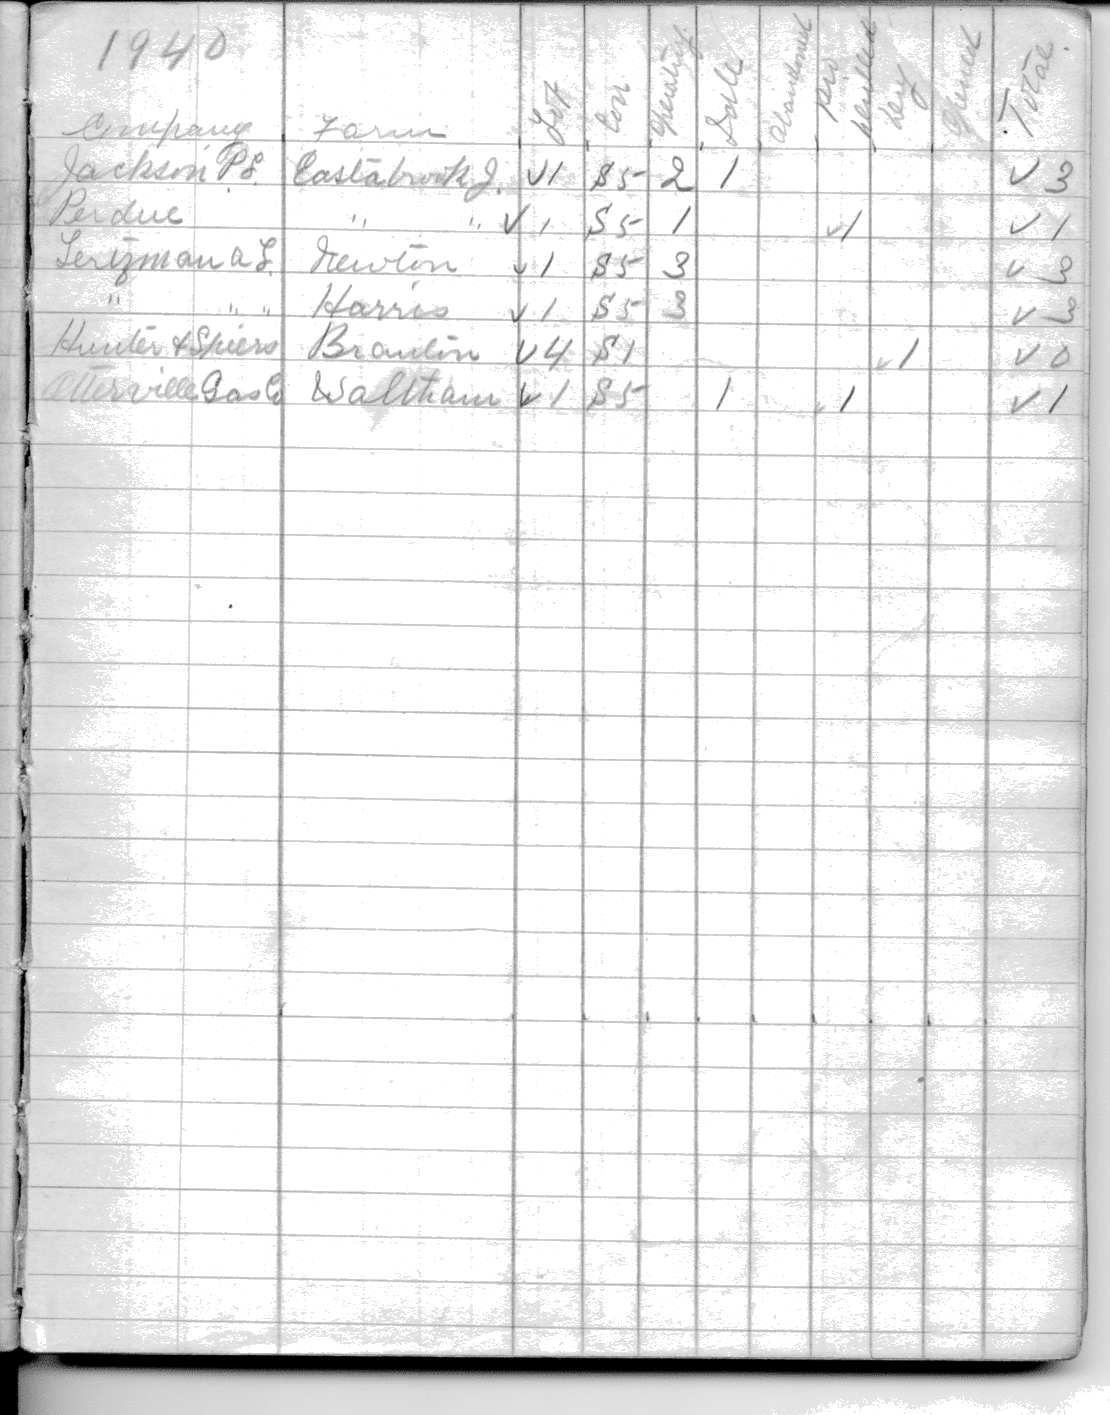 1940
Company Farm Lot Con Operating Idle Abandoned pro drilled dry Plugged Total.
Jackson P.S. Eastabrook J. √1 S5 2 1 √ 3
Perdue " " √1 S5 1 √1 √ 1
Lertzman a L. Newton √1 S5 3 √ 3
" " " Harris √1 S5 3 √ 3
Hunter & Spiers Branton √4 S1 √1 √ 0
Otterville Gas Co Waltham √1 S5 1 √1 √ 1